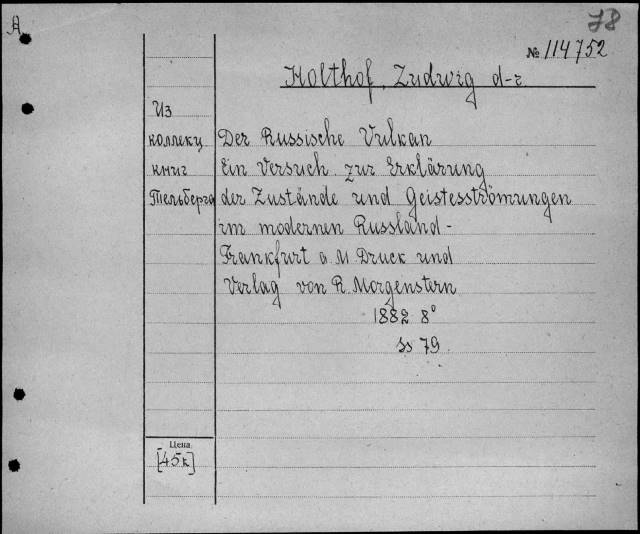 A
78
№ 114752
Holthof, Ludwig d-r.
Из
коллекц.
книг
Тельберга
Der Russische Vulkan
Ein Versuch zur Erklärung
der Zustände und Geistesströmungen
im modernen Russland -
Frankfurt a. M. Druck und
Verlag von R. Morgenstern
1882 8°
ss 79.
Цена
[45к]